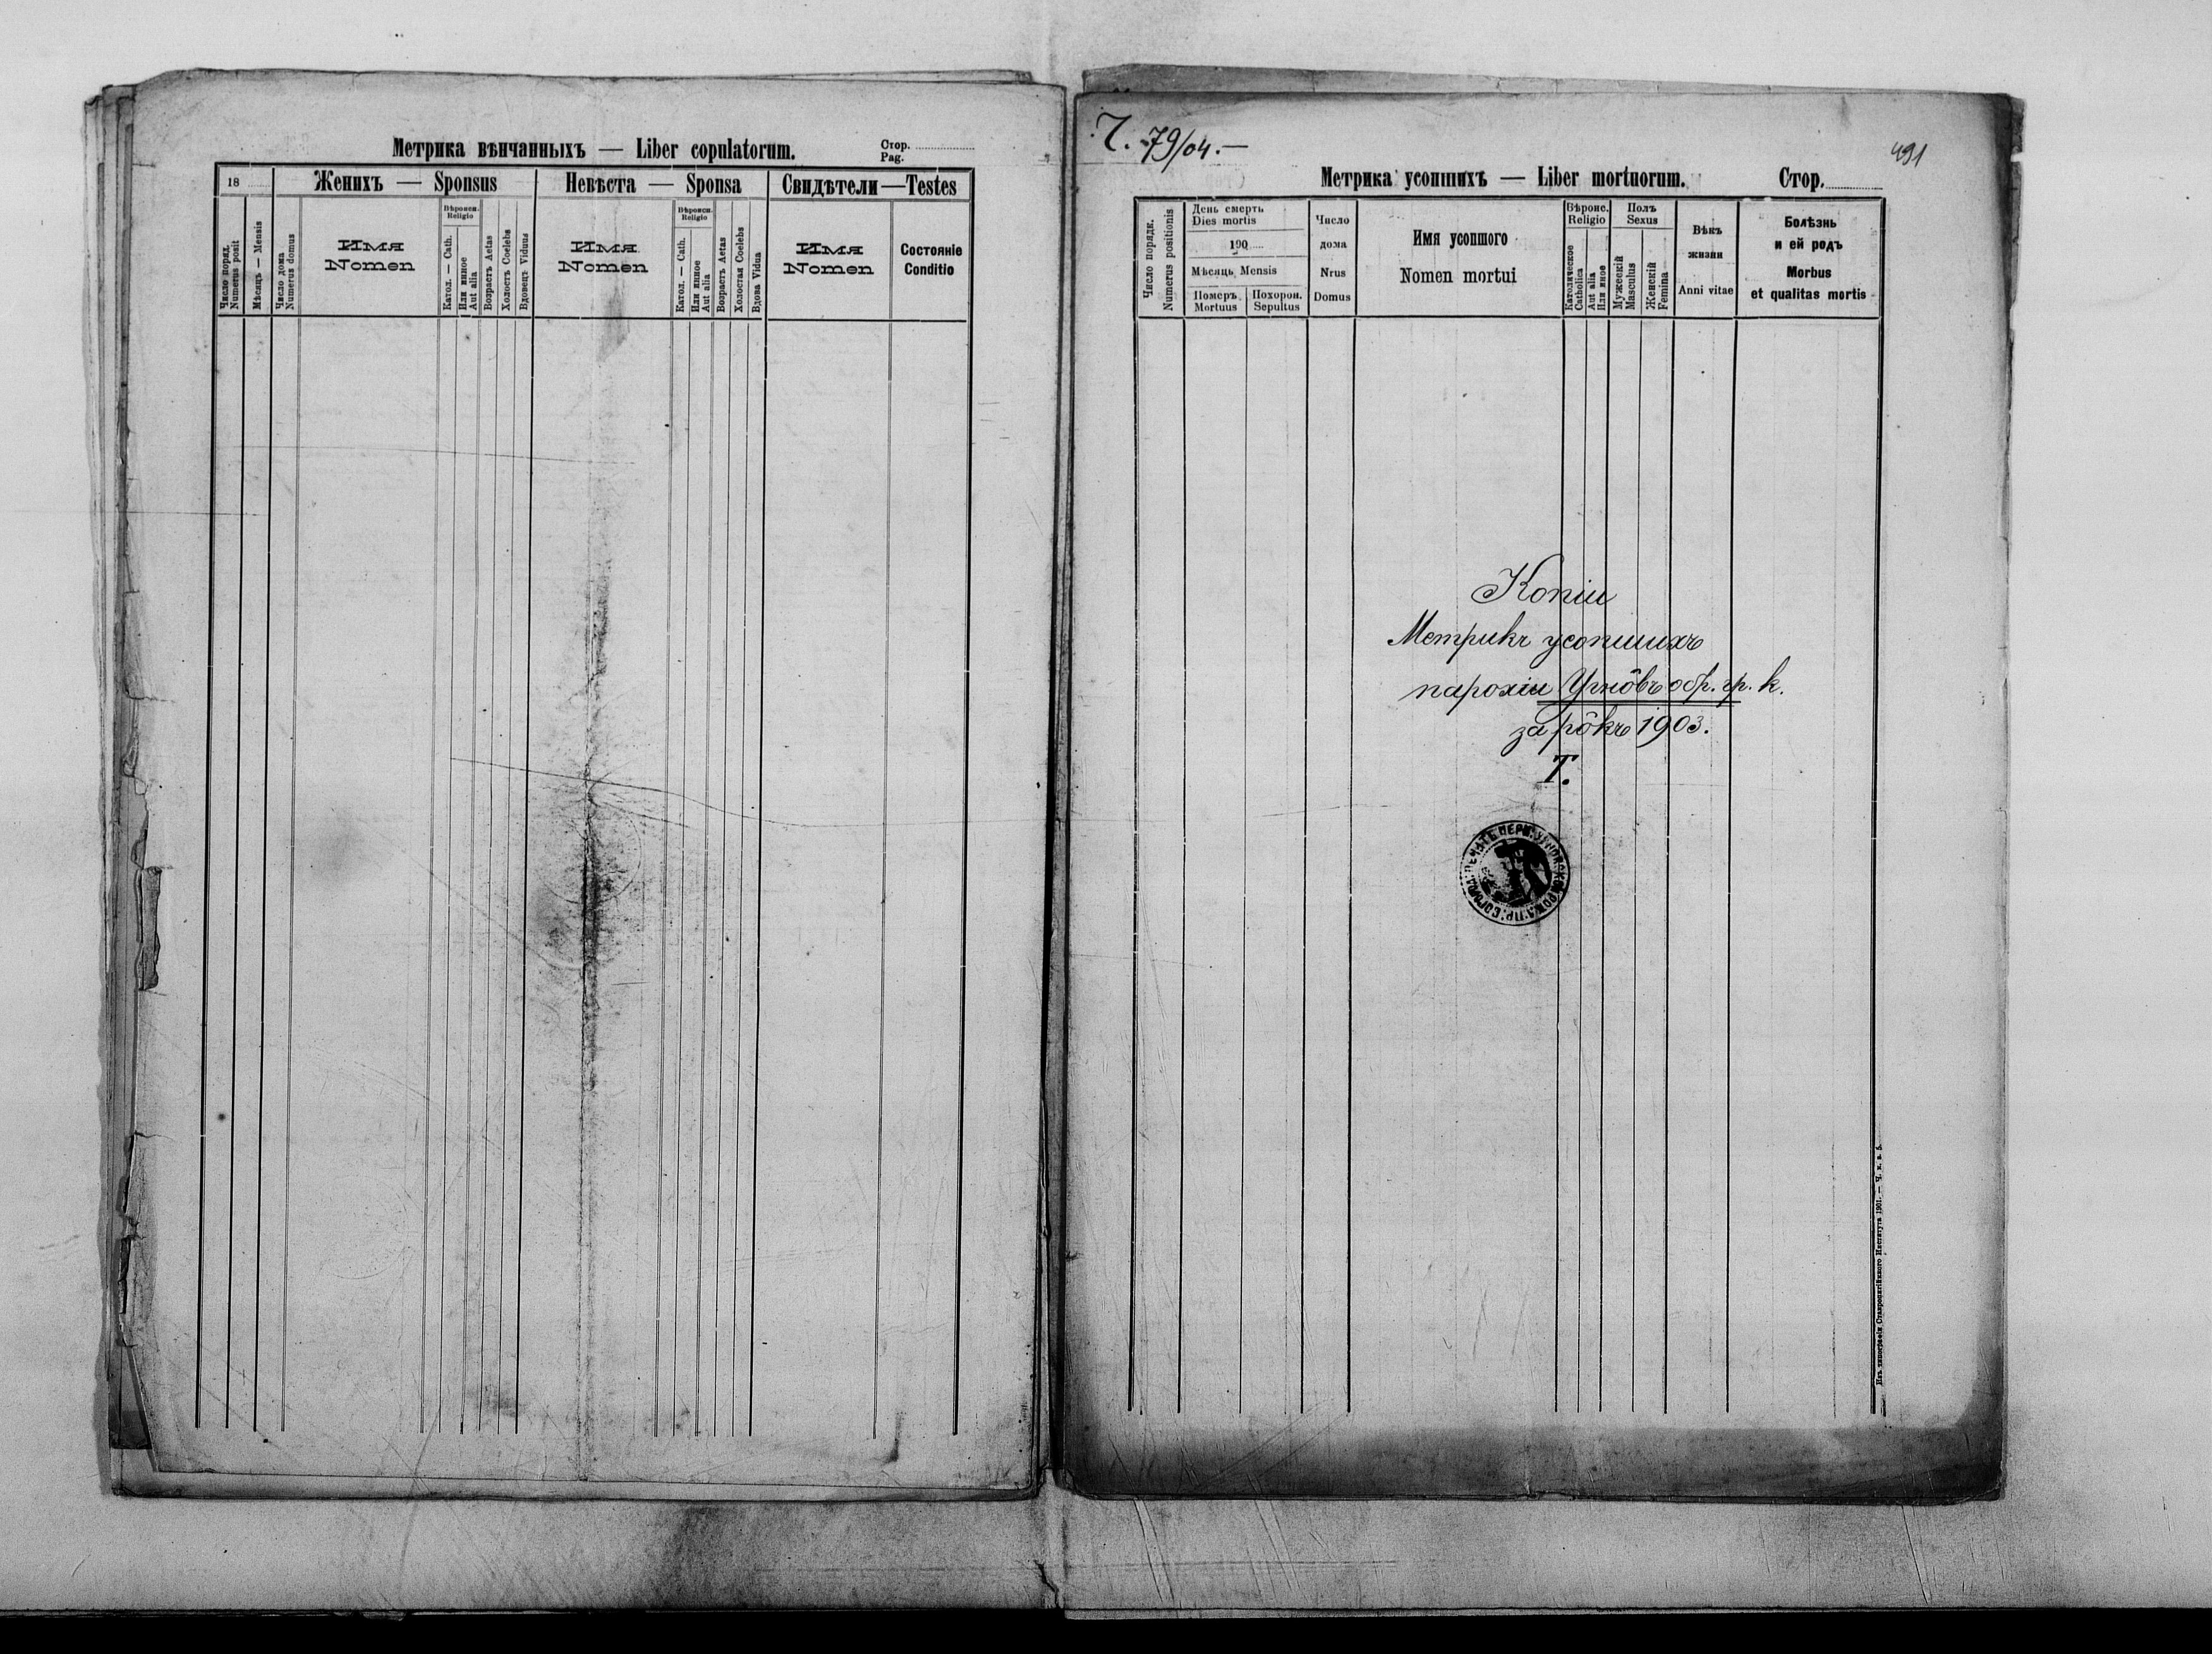 Метрика вѣнчанныхъ — Liber copulatorum.
Стор.
Pag.
18
Женихъ — Sponsus
Невѣста — Sponsa
Свидѣтели — Testes
Число поряд.
Numerus posit
Мѣсяцъ — Mensis
Число дома
Numerus domus
Имя
Nomen
Вѣроисп.
Religio
Катол. — Cath.
Или инное
Aut alia
Возрастъ Aetas
Холостъ Coelebs
Вдовецъ Viduus
Имя
Nomen
Вѣроисп.
Religio
Катол. — Cath.
Или инное
Aut alia
Возрастъ Aetas
Холостая Coelebs
Вдова Vidua
Имя
Nomen
Состояніе
Conditio
Ч. 79/04.—
491
Метрика усопшихъ — Liber mortuorum.
Стор.
Число порядк.
Numerus positionis
День смерть
Dies mortis
190
Мѣсяцъ Mensis
Померъ
Mortuus
Похорон.
Sepultus
Число
дома
Nrus
Domus
Имя усопшого
Nomen mortui
Вѣроис.
Religio
Католическое
Catholica
Aut alia
Или иное
Полъ
Sexus
Мужескій
Masculus
Женскій
Femina
Вѣкъ
жизни
Anni vitae
Болѣзнь
и ей родъ
Morbus
et qualitas mortis
Копіи
Метрикъ усопшихъ
парохіи Угнôвъ обр. гр. к.
за рôкъ 1903.
Т.
Изъ типографіи Ставропигійского Института 1901. — Ч. к. в. 5.